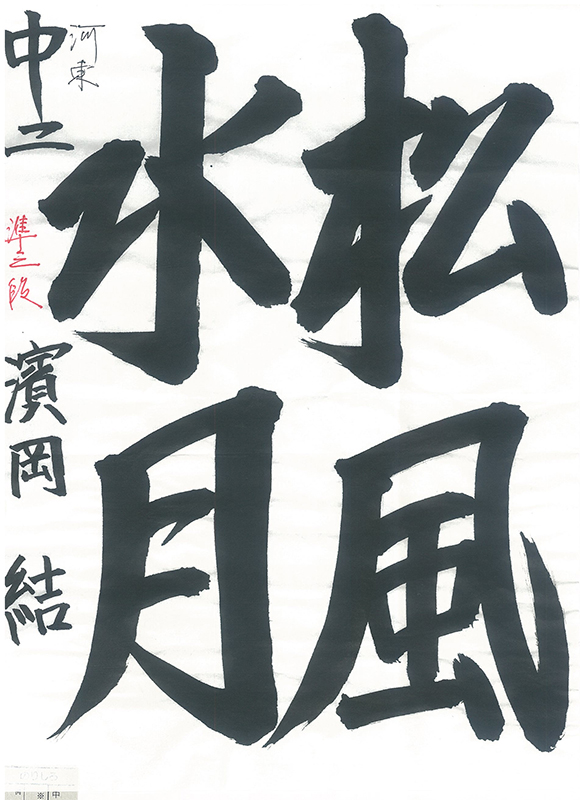 松風
水月
河東
中二
準三段
濱岡 結